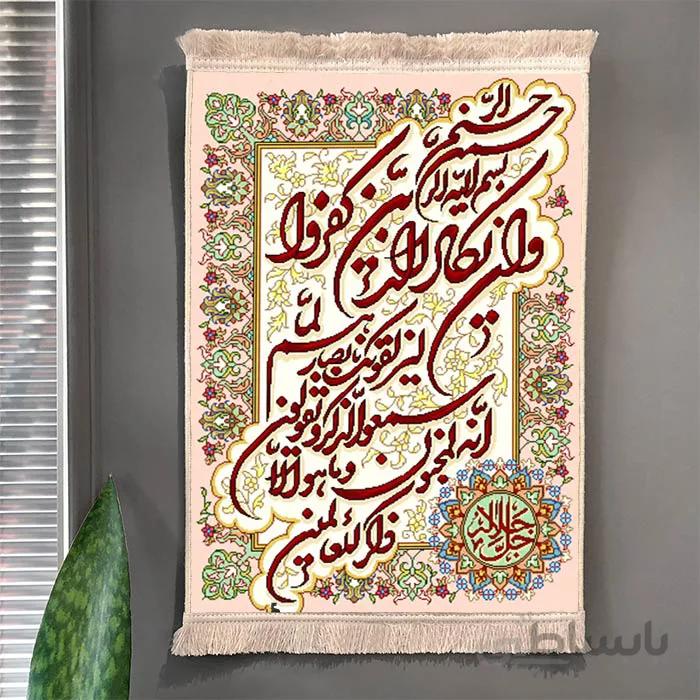 بسم الله الرحمن الرحیم
وان یکاد الذین کفروا
لیزلقونک بابصارهم لما
سمعوا الذکر و یقولون
انه لمجنون وما هو الا
ذکر للعالمین
جل جلاله
باسلطی